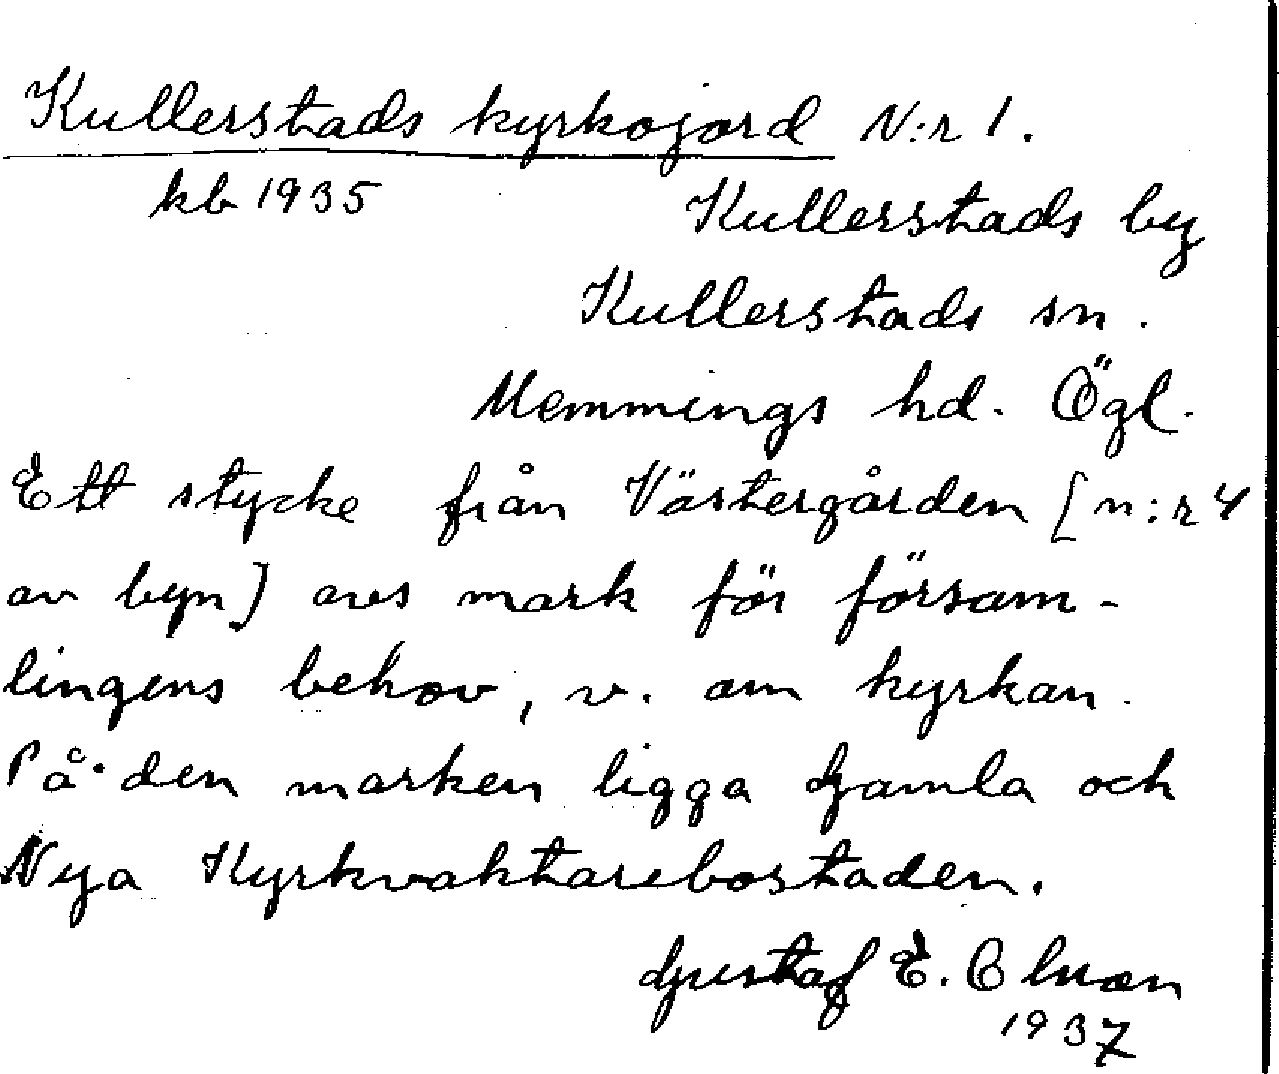 Kullerstads kyrkojord N:r 1.
kb 1935
Kullerstads by
Kullerstads sn.
Memmings hd. Ögl.
Ett stycke från Västergården [n:r 4
av byn] avs mark för försam-
lingens behov, v. om kyrkan.
På den marken ligga Gamla och
Nya Kyrkvaktarebostaden.
Gustaf E.
1937